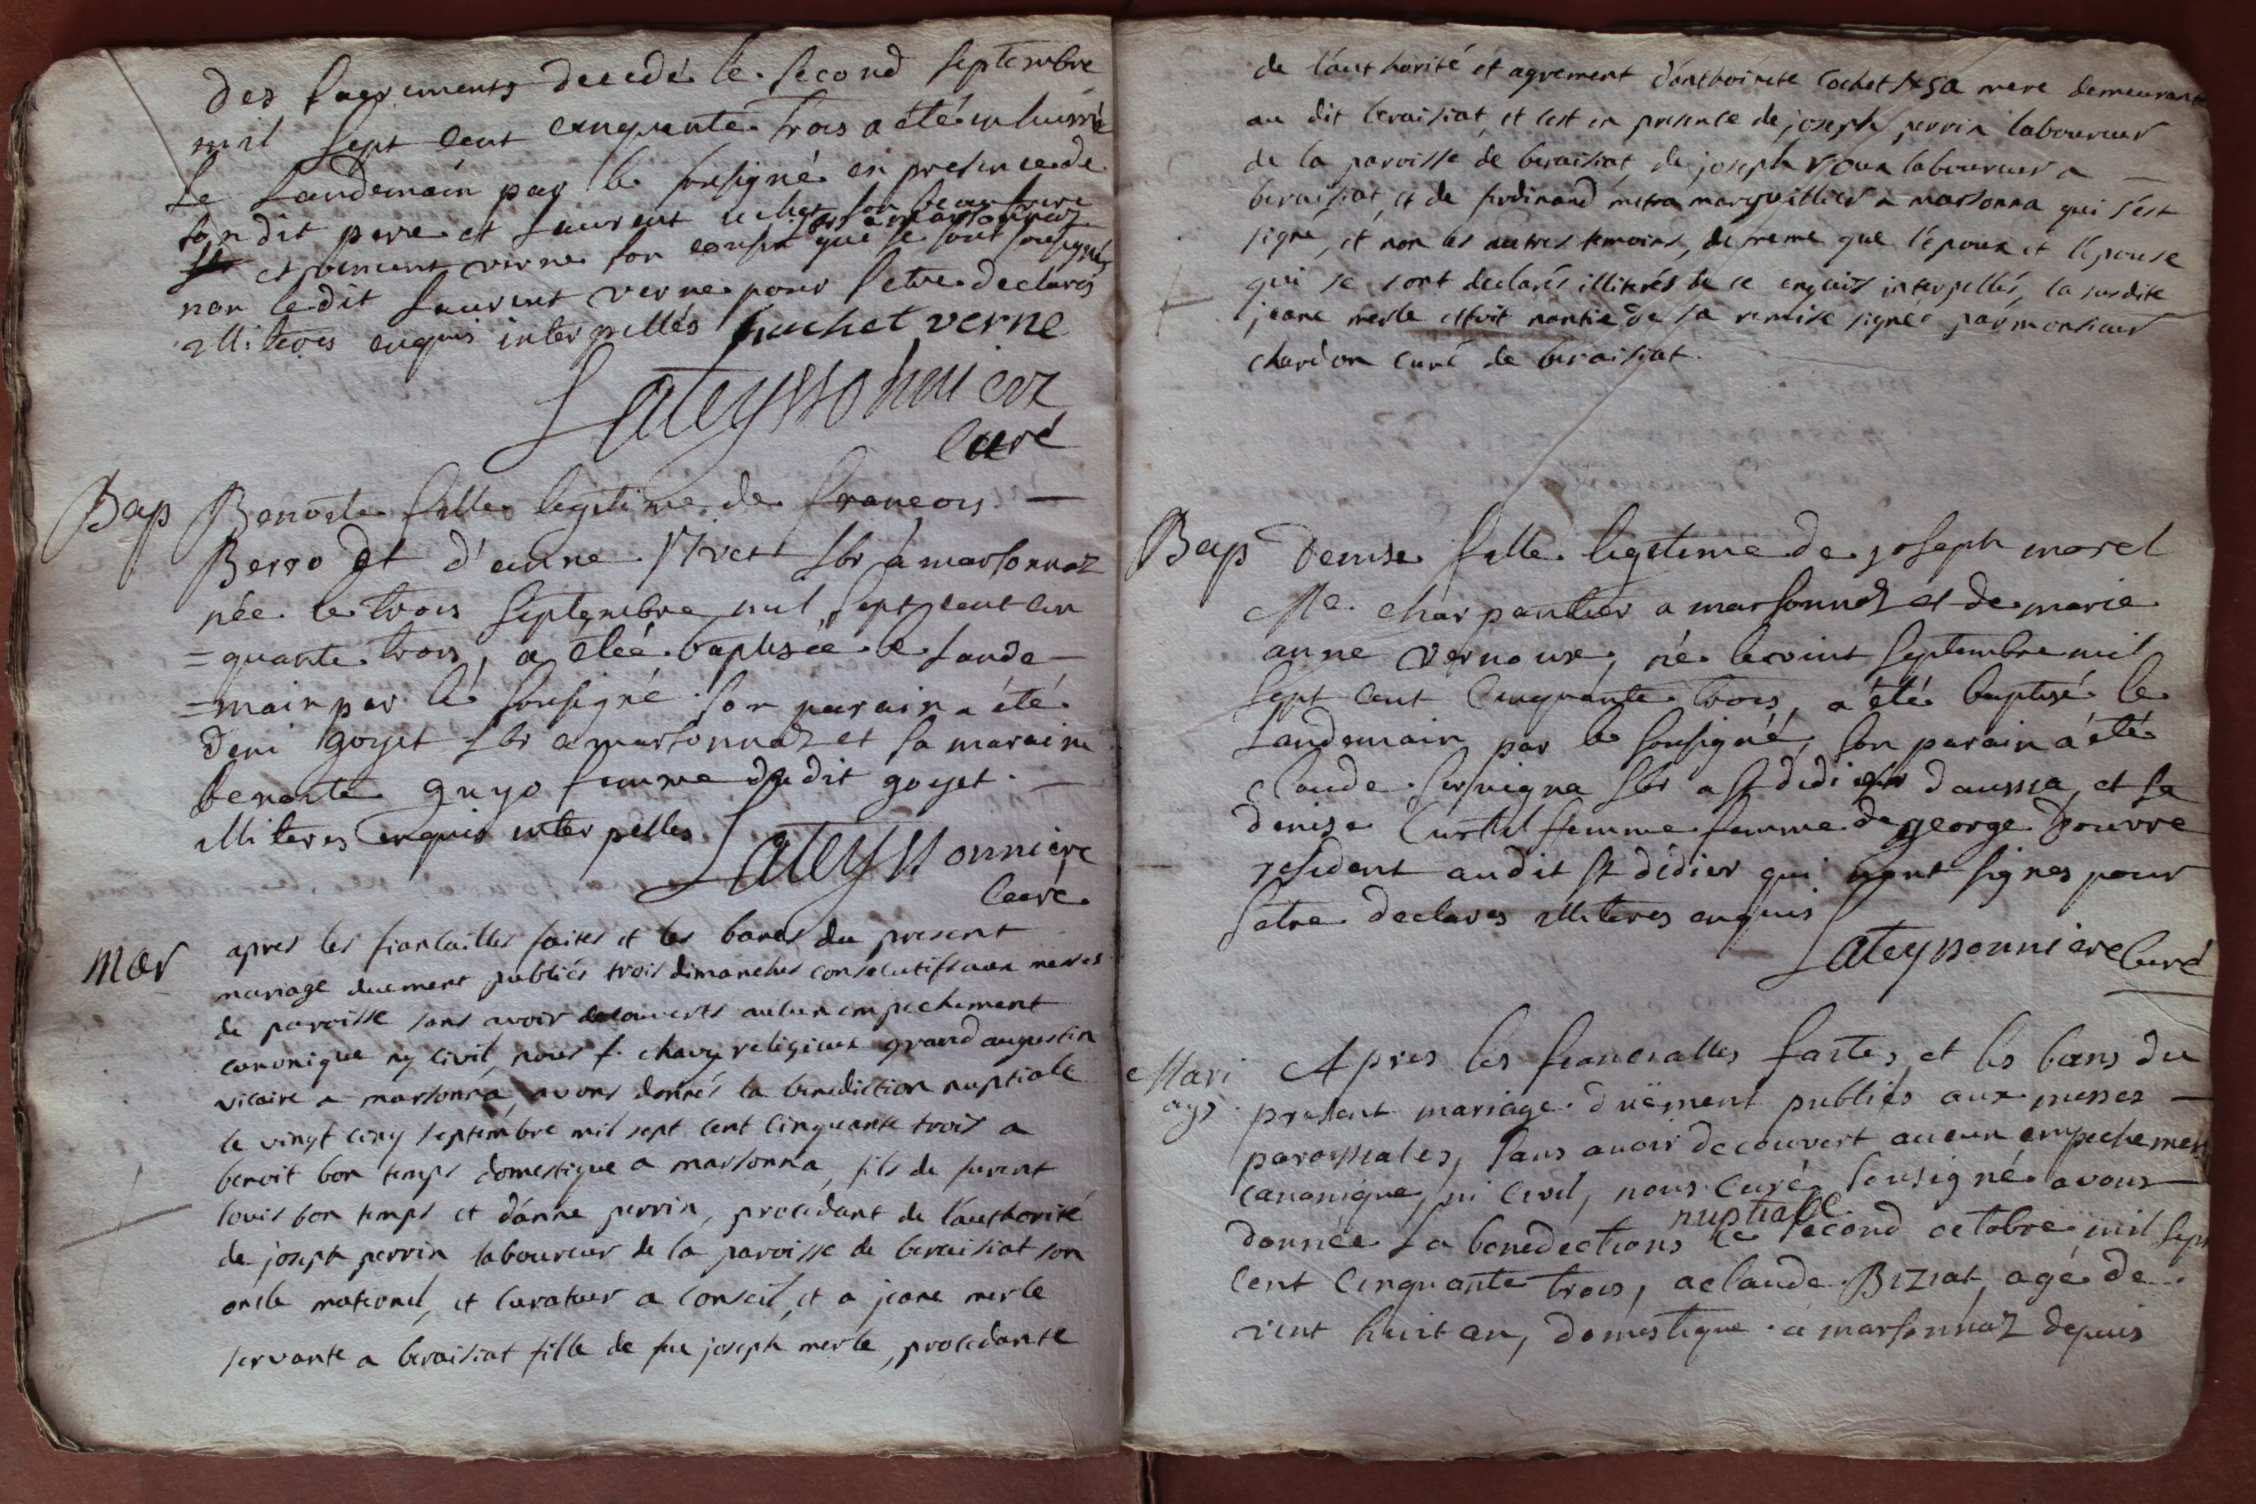 des sacrements decedé le second septembre
mil sept cent cinquante trois a été inhumé
le landemain par le sousigné en presence de
son dit pere et laurent uchet son beau frere
et vincent verne son cousin que se sont sousignés
non ledit laurent verne pour setre declarés
illiteres enquis interpellés huchet verne
Lateyssonniere
Curé
Bap Benoite fille legitime de francois
Berro et d'anne Pivet lbr a marsonnaz
née le trois septembre mil sept cent cin
=quante trois, a eteé baptisée le lande
=main par le sousigné son parain a été
deni goyet lbr a marsonnaz et sa maraine
benoite guyo femme dudit goyet.
illiteres enquis interpelles Lateyssonniere
Curé
mar apres les fiancailles faites et les bancs du present
mariage duement publiés trois dimanches consecutifs aux messes
de paroisse sans avoir decouverts aucun empechement
canonique ny civil, nous f. chavy religieux grand augustin
vicaire a marsonna, avons donnés la benediction nuptiale
le vingt cinq septembre mil sept cent cinquante trois a
benoit bon temps domestique a marsonna, fils de furent
louis bon temps et d'anne perrin, procedant de l'authorité
de joseph perrin laboureur de la paroisse de beraisiat son
oncle maternel, et curateur a conseil, et a jeane merle
servante a beraisiat fille de fue joseph merle, procedante
de l'authorité et agrement d'anthoinete cochet sa mere demeurante
au dit beraisiat, et cest en presence de joseph perrin laboureur
de la paroisse de beraisiat, de joseph roux laboureur a
beraisiat, et de ferdinand metra marguillier a marsonna qui s'est
signe, et non les autres temoins, de meme que l'époux et l'épouse
qui se sont declarés illiterés de ce enquis interpellés, la susdite
jeane merle estoit nantie de sa remise signee par monsieur
chardon curé de beraisiat.
Bap Denise fille legitime de joseph morel
Me. charpantier a marsonnaz et de marie
anne vernoux, né le vint septembre mil
sept cent cinquante trois, a été baptisé le
landemain par le sousigné, son parain a été
claude servigna lbr a st didier daussia, et sa
denise Curtil femme femme de george Pouvre
résident audit st didier qui nont signes pour
setre declares illiteres enquis
Lateyssonniere Curé
Mari Apres les fiancialles faites, et les bans du
age present mariage duëment publiés aux messes
paroissiales, sans avoir decouvert aucun empechement
canonique, ni civil, nous curé sousigné avons
nuptiale
donnée la benedictions le second octobre mil sept
cent cinquante trois, a claude Biziat, agé de
vint huit an, domestique a marsonnaz depuis